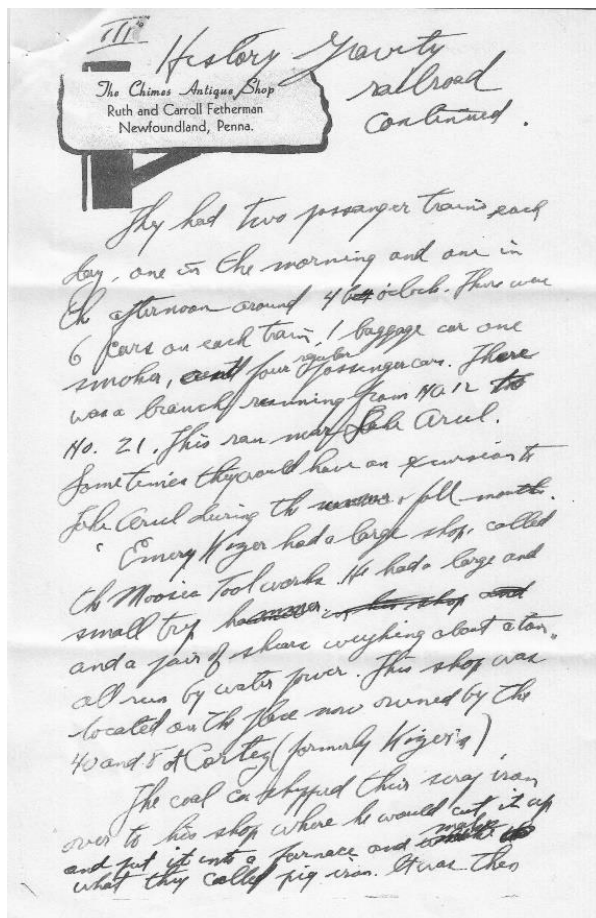 III
History Gravity
railroad
continued.
The Chimes Antique Shop
Ruth and Carroll Fetherman
Newfoundland, Penna.
They had two passanger trains each
day, one in the morning and one in
the afternoon around 4 o'clock. There were
6 cars on each train, 1 baggage car one
smoker, four regular passenger cars. There
was a branch running from No 12 to
No. 21. This ran near Lake Ariel.
Sometimes they would have an excursion to
Lake Ariel during the & fall months.
" Emery Wizer had a large shop, called
the Moosica Tool works. He had a large and
small trip hammer
and a pair of shears weighing about a ton,,
all run by water power. This shop was
located on the place now owned by the
40 and 8 at Cortez (formerly Wizer's)
The coal co shipped their scrap iron
over to his shop where he would cut it up
and put it into a furnace and make
what they called pig iron. It was then